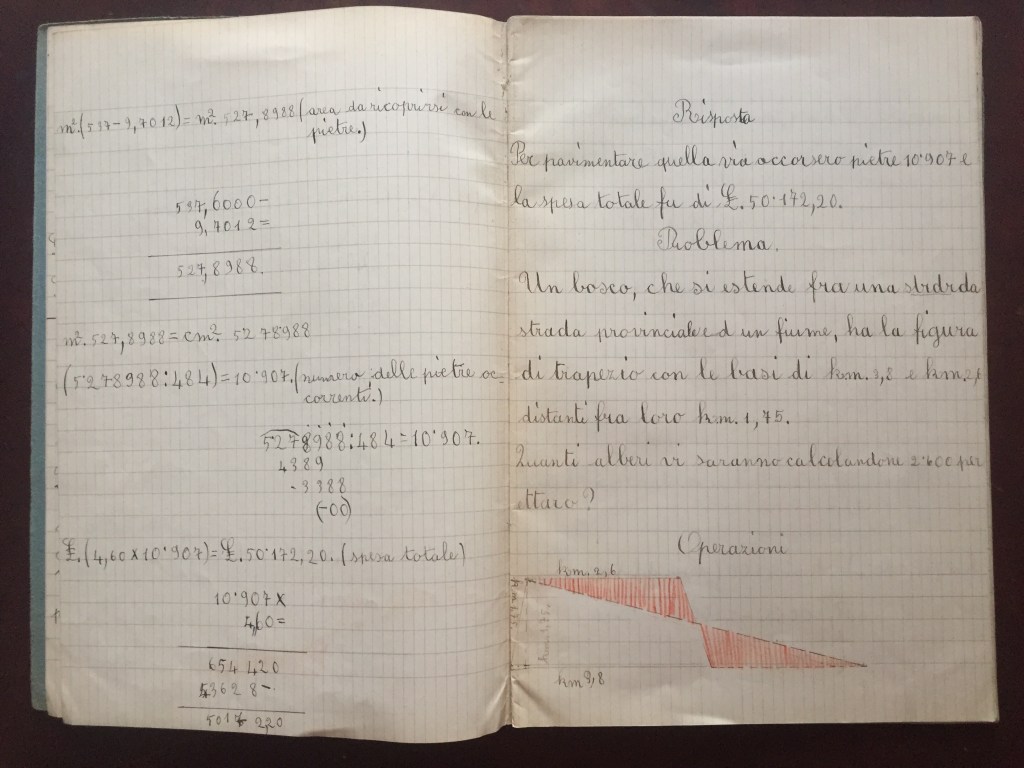 m². (537-9,7012) = m². 527,8988 (area da ricoprirsi con le
pietre.)
537,6000-
9,7012=
527,8988.
m². 527,8988 = cm². 5278988
(5278988:484) = 10·907. (numero delle pietre oc=
correnti.)
5278988:484=10·907.
4389
·3388
(-00)
£. (4,60×10·907)=£. 50·172,20. (spesa totale)
10·907×
4,60=
654 420
43628-·
50172 20
Risposta
Per pavimentare quella via occorsero pietre 10·907 e
la spesa totale fu di £. 50·172,20.
Problema.
Un bosco, che si estende fra una strdrda
strada provinciale e d un fiume, ha la figura
di trapezio con le basi di km. 3,8 e km. 2,6
distanti fra loro km. 1,75.
Quanti alberi vi saranno calcolandone 2·600 per
ettaro?
Operazioni
km. 2,6
km 3,8